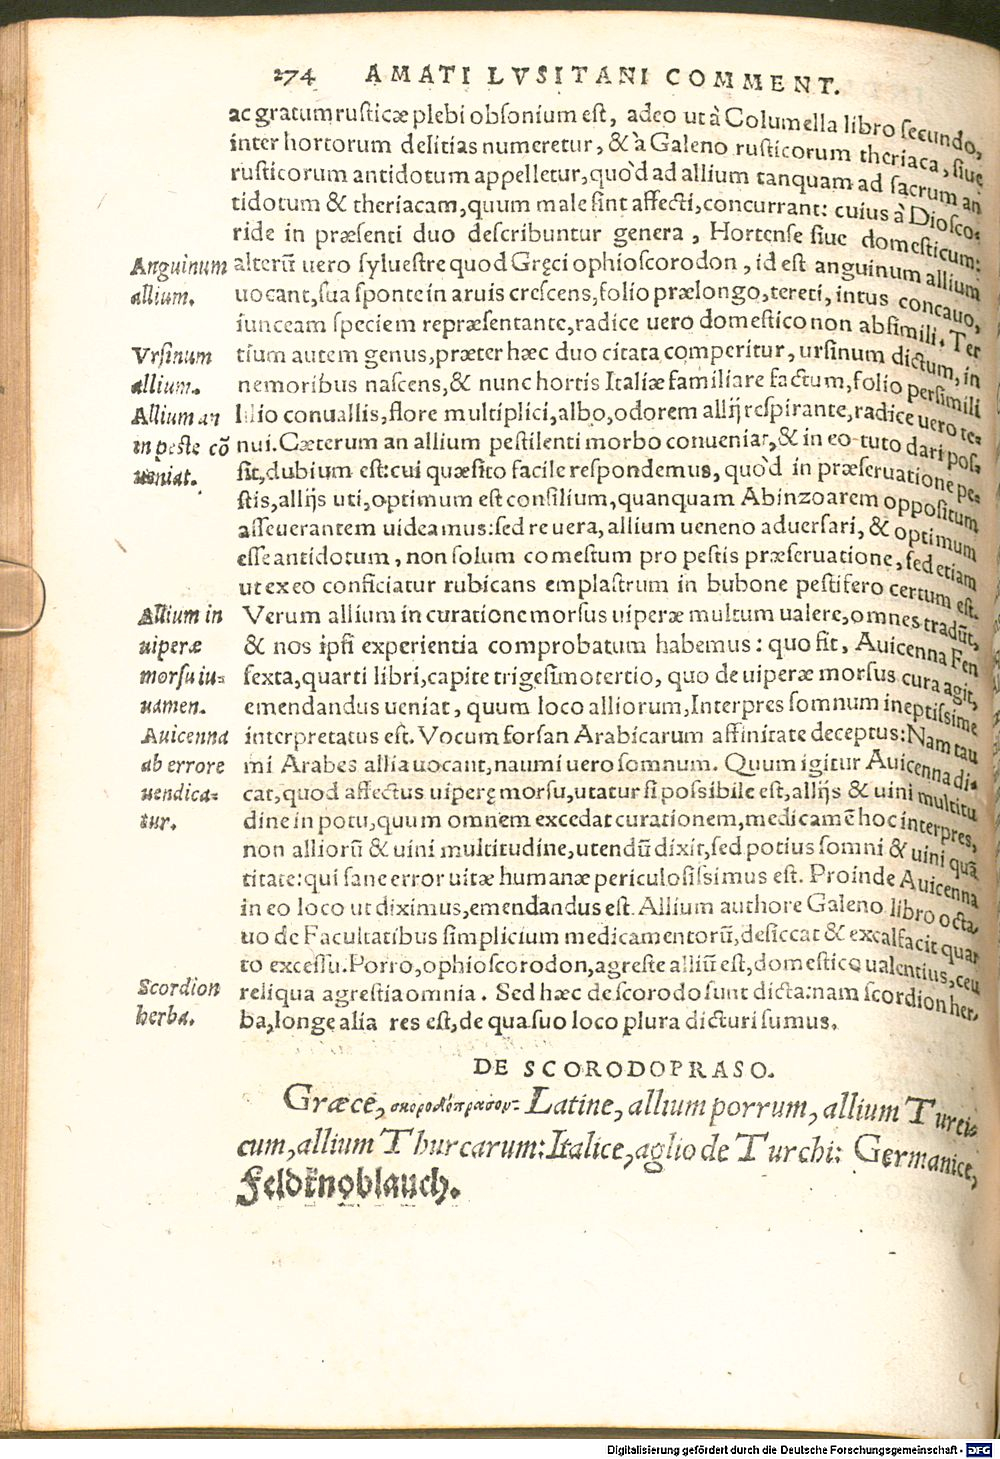 274 AMATI LVSITANI COMMENT.
ac gratum rusticæ plebi obsonium est, adeo ut à Columella libro secundo,
inter hortorum delitias numeretur, & à Galeno rusticorum theriaca, siue
rusticorum antidotum appelletur, quòd ad allium tanquam ad sacrum an
tidotum & theriacam, quum male sint affecti, concurrant: cuius à Diosco-
ride in præsenti duo describuntur genera, Hortense siue domesticum:
Anguinum
allium.
alterũ uero syluestre quod Gręci ophioscorodon, id est anguinum allium
uocant, sua sponte in aruis crescens, folio prælongo, tereti, intus concauo,
iunceam speciem repræsentante, radice uero domestico non absimili. Ter
Vrsinum
allium.
tium autem genus, præter hæc duo citata comperitur, ursinum dictum, in
nemoribus nascens, & nunc hortis Italiæ familiare factum, folio persimili
Allium an
in peste cõ
ueniat.
lilio conuallis, flore multiplici, albo, odorem allij respirante, radice uero te-
nui. Cæterum an allium pestilenti morbo conueniat, & in eo tuto dari pos-
sit, dubium est: cui quæsito facile respondemus, quòd in præseruatione pe-
stis, allijs uti, optimum est consilium, quanquam Abinzoarem oppositum
asseuerantem uideamus: sed reuera, allium ueneno aduersari, & optimum
esse antidotum, non solum comestum pro pestis præseruatione, sed etiam
ut ex eo conficiatur rubicans emplastrum in bubone pestifero certum est.
Allium in
uiperæ
morsu iu-
uamen.
Verum allium in curatione morsus uiperæ multum ualere, omnes tradũt,
& nos ipsi experientia comprobatum habemus: quo fit, Auicenna Fen
sexta, quarti libri, capite trigesimotertio, quo de uiperæ morsus cura agit,
emendandus ueniat, quum loco alliorum, Interpres somnum ineptissime
Auicenna
ab errore
uendica-
tur.
interpretatus est. Vocum forsan Arabicarum affinitate deceptus: Nam tau
mi Arabes allia uocant, naumi uero somnum. Quum igitur Auicenna di-
cat, quod affectus uiperę morsu, utatur si possibile est, allijs & uini multitu
dine in potu, quum omnem excedat curationem, medicamẽ hoc interpres,
non alliorũ & uini multitudine, utendũ dixit, sed potius somni & uini quã
titate: qui sane error uitæ humanæ periculosissimus est. Proinde Auicenna
in eo loco ut diximus, emendandus est. Allium authore Galeno libro octa-
uo de Facultatibus simplicium medicamentorũ, desiccat & excalfacit quar
to excessu. Porro, ophioscorodon, agreste alliũ est, domestico ualentius, ceu
Scordion
herba.
reliqua agrestia omnia. Sed hæc de scorodo sunt dicta: nam scordion her-
ba, longe alia res est, de qua suo loco plura dicturi sumus.
DE SCORODOPRASO.
Græce, σκοροδόπρασον: Latine, allium porrum, allium Turci-
cum, allium Thurcarum: Italice, aglio de Turchi: Germanice,
Feldknoblauch.
Digitalisierung gefördert durch die Deutsche Forschungsgemeinschaft - DFG